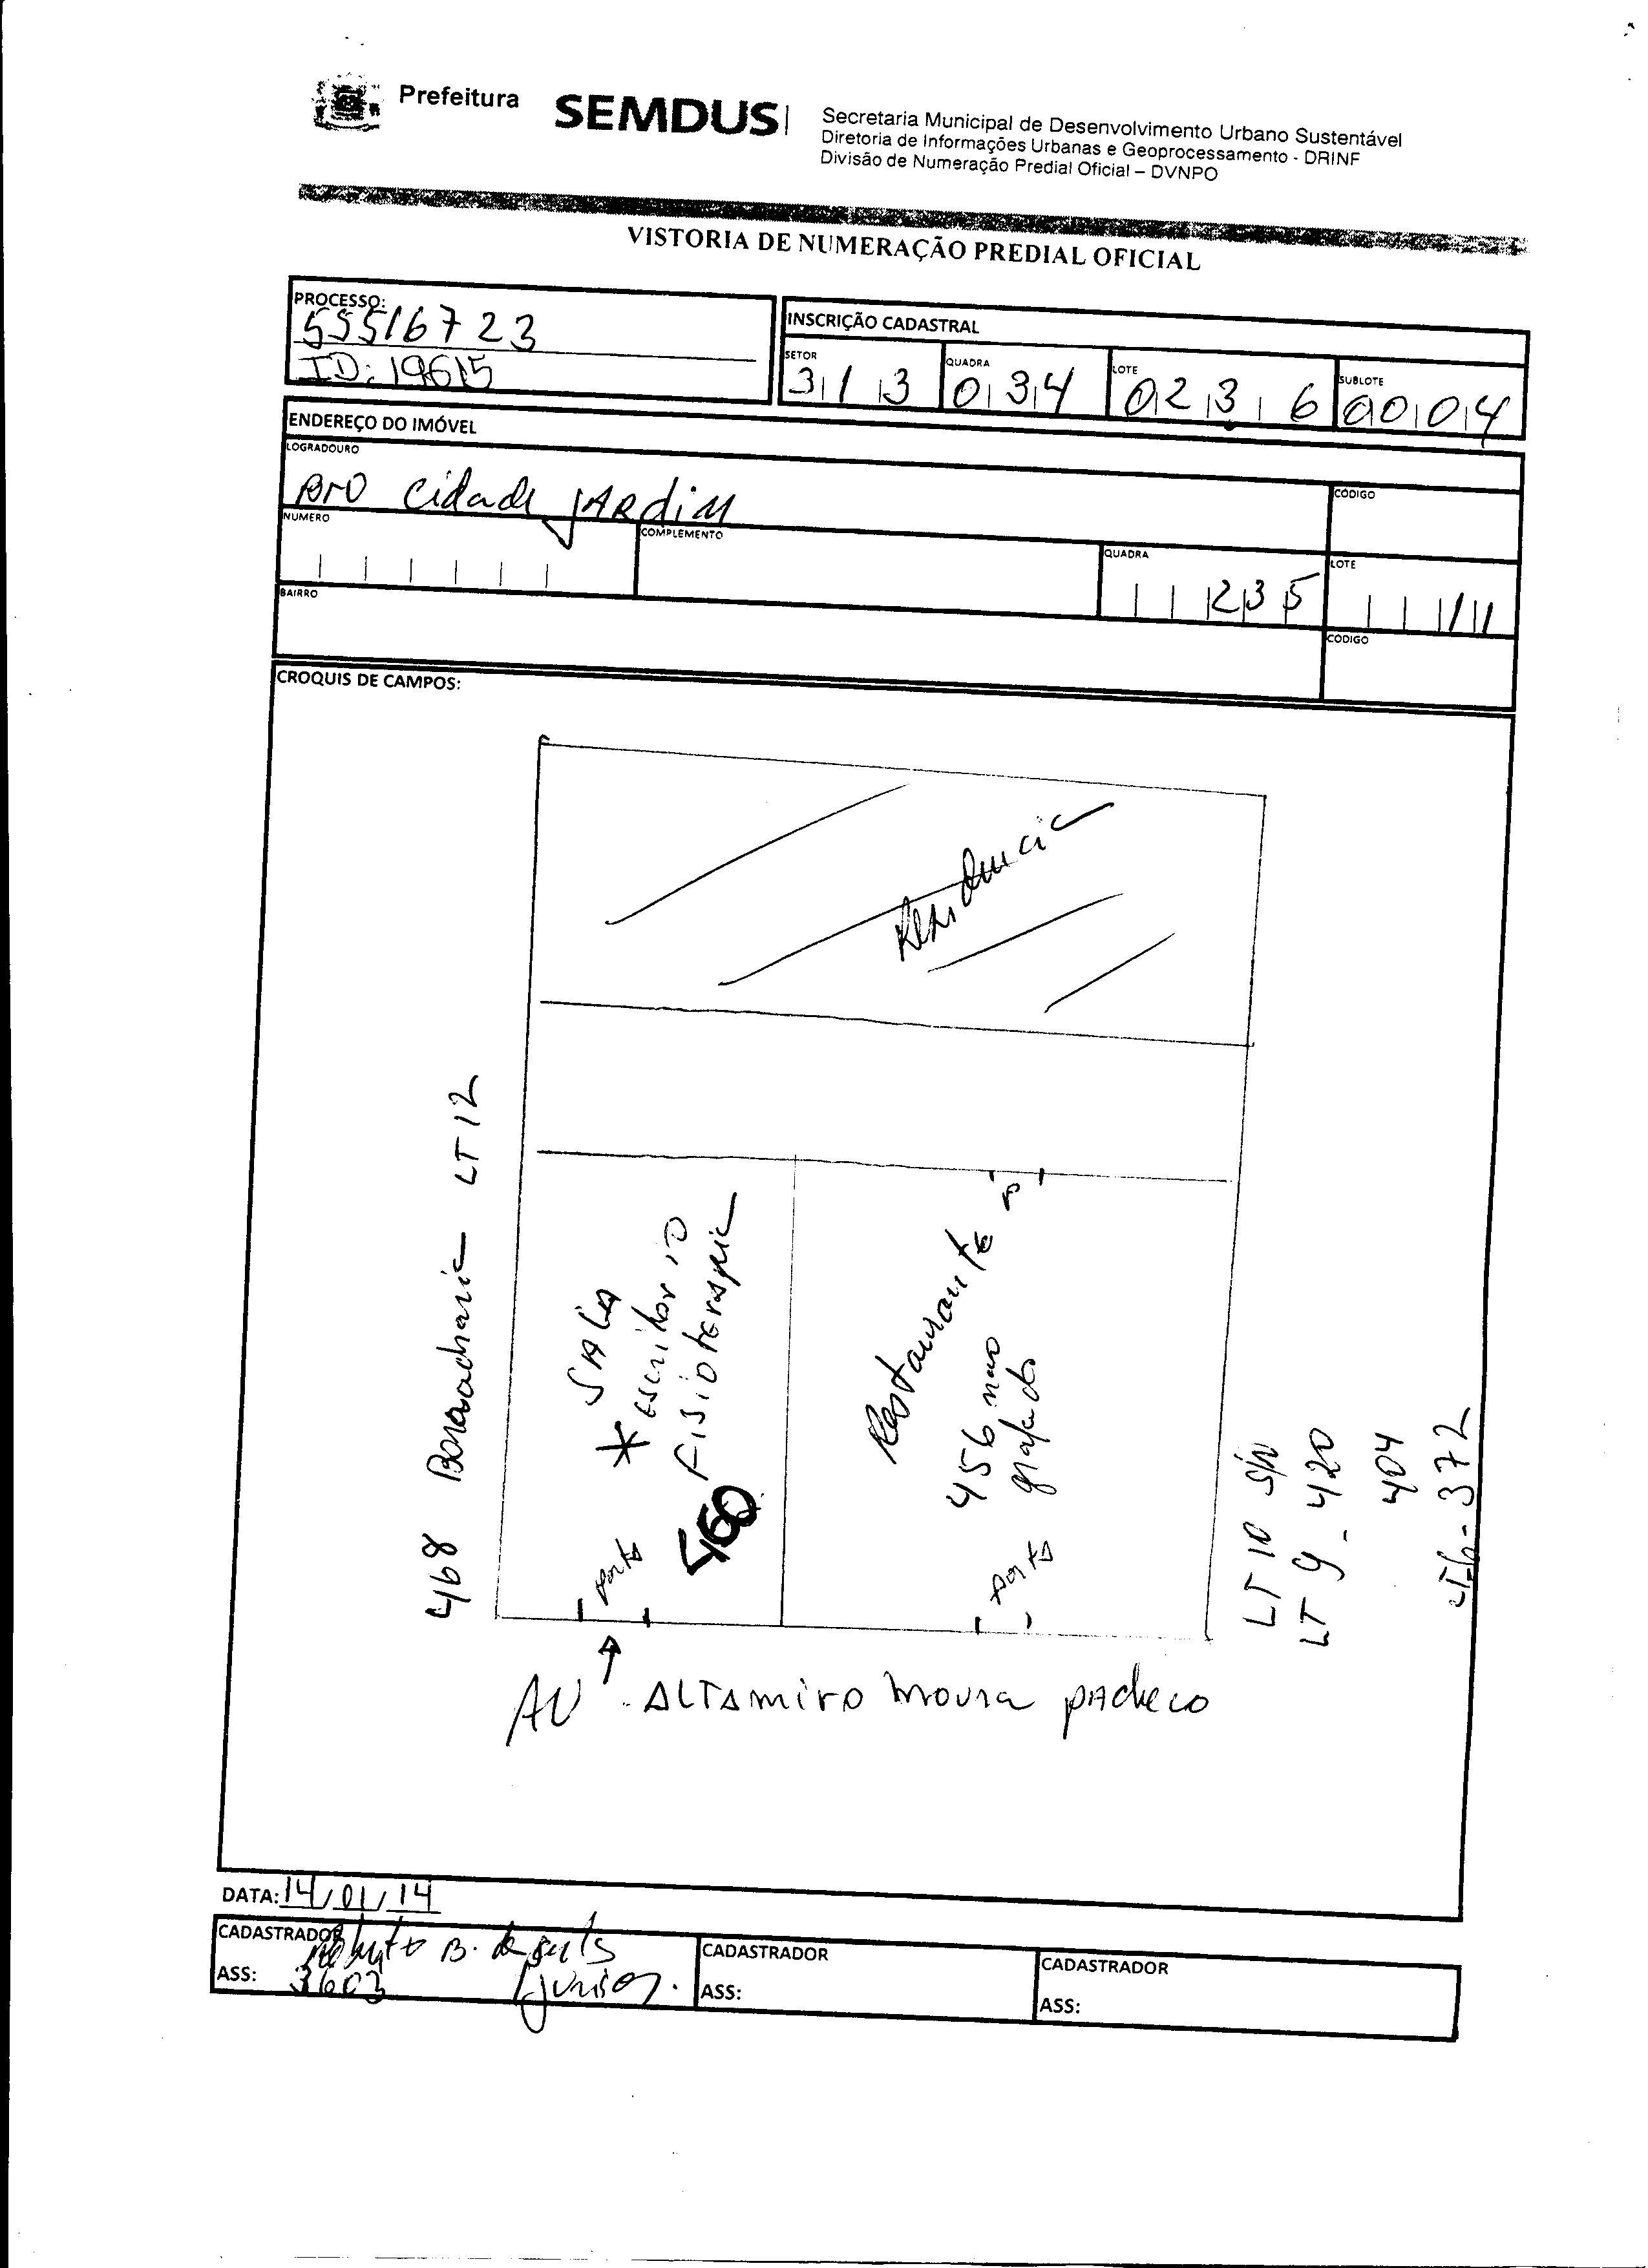 Prefeitura
SEMDUS
Secretaria Municipal de Desenvolvimento Urbano Sustentável
Diretoria de Informações Urbanas e Geoprocessamento - DRINF
Divisão de Numeração Predial Oficial – DVNPO
VISTORIA DE NUMERAÇÃO PREDIAL OFICIAL
PROCESSO:
55516723
ID: 19615
INSCRIÇÃO CADASTRAL
SETOR
313
QUADRA
034
LOTE
0236
SUBLOTE
0004
ENDEREÇO DO IMÓVEL
LOGRADOURO
BrO Cidade JARdiM
CÓDIGO
NUMERO
COMPLEMENTO
QUADRA
235
LOTE
11
BAIRRO
CÓDIGO
CROQUIS DE CAMPOS:
Residencia
468 Borracharia LT 12
SALA
* Escritorio
Fisioterapia
460
porta
Restaurante
456 nao
grafado
porta
LT 10 S/N
LT 9 - 420
404
- 372
AV. ALTAmiro moura pAcheco
DATA: 14/01/14
CADASTRADOR
B. de
ASS: 3603 Junior.
CADASTRADOR
ASS:
CADASTRADOR
ASS: